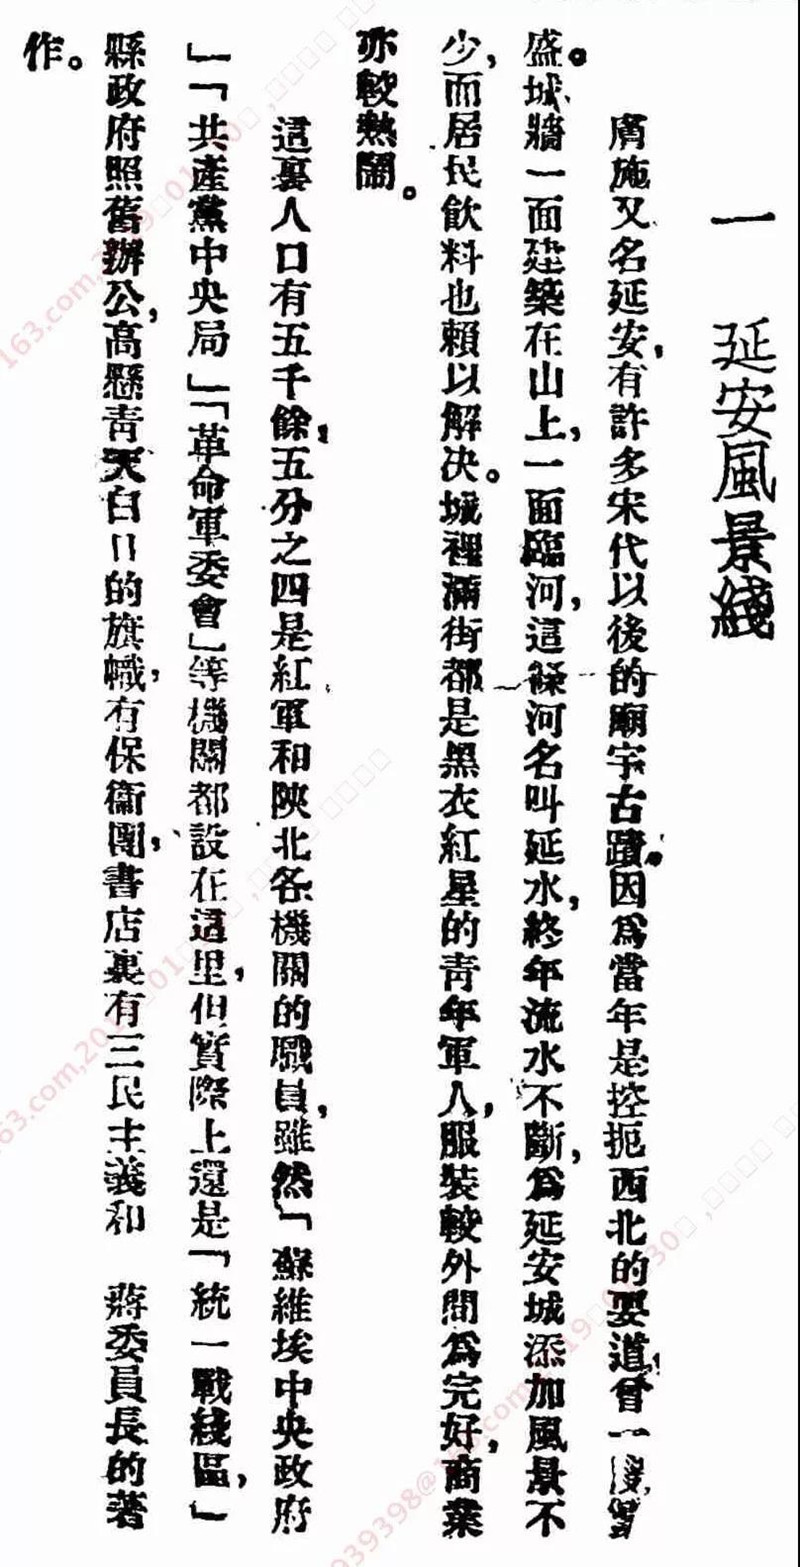 一　延安風景綫
膚施又名延安，有許多宋代以後的廟宇古蹟。因爲當年是控扼西北的要道，曾一度繁
盛。城牆一面建築在山上，一面臨河，這條河名叫延水，終年流水不斷，爲延安城添加風景不
少，而居民飲料也賴以解决。城裡滿街都是黑衣紅星的青年軍人，服裝較外間爲完好，商業
亦較熱鬧。
這裏人口有五千餘，五分之四是紅軍和陝北各機關的職員，雖然「蘇維埃中央政府
」「共產黨中央局」「革命軍委會」等機關都設在這里，但實際上還是「統一戰綫區，」
縣政府照舊辦公，高懸青天白日的旗幟，有保衞團，書店裏有三民主義和　蔣委員長的著
作。